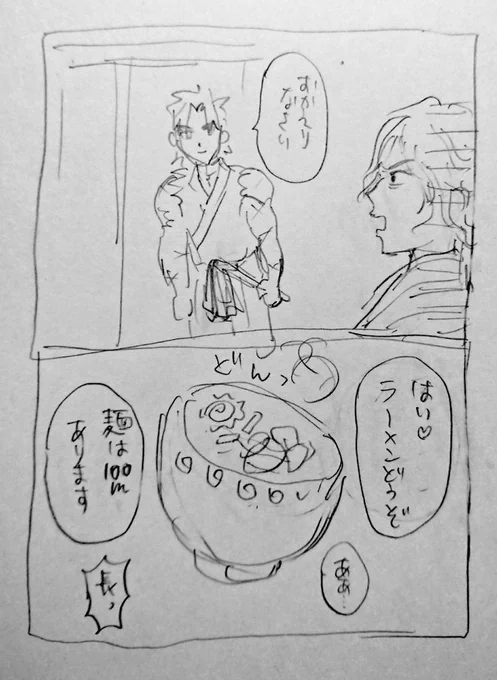 おかえり
なさい
はい♡
ラーメンどうぞ
どんっ
ああ…
麺は100m
あります
長っ